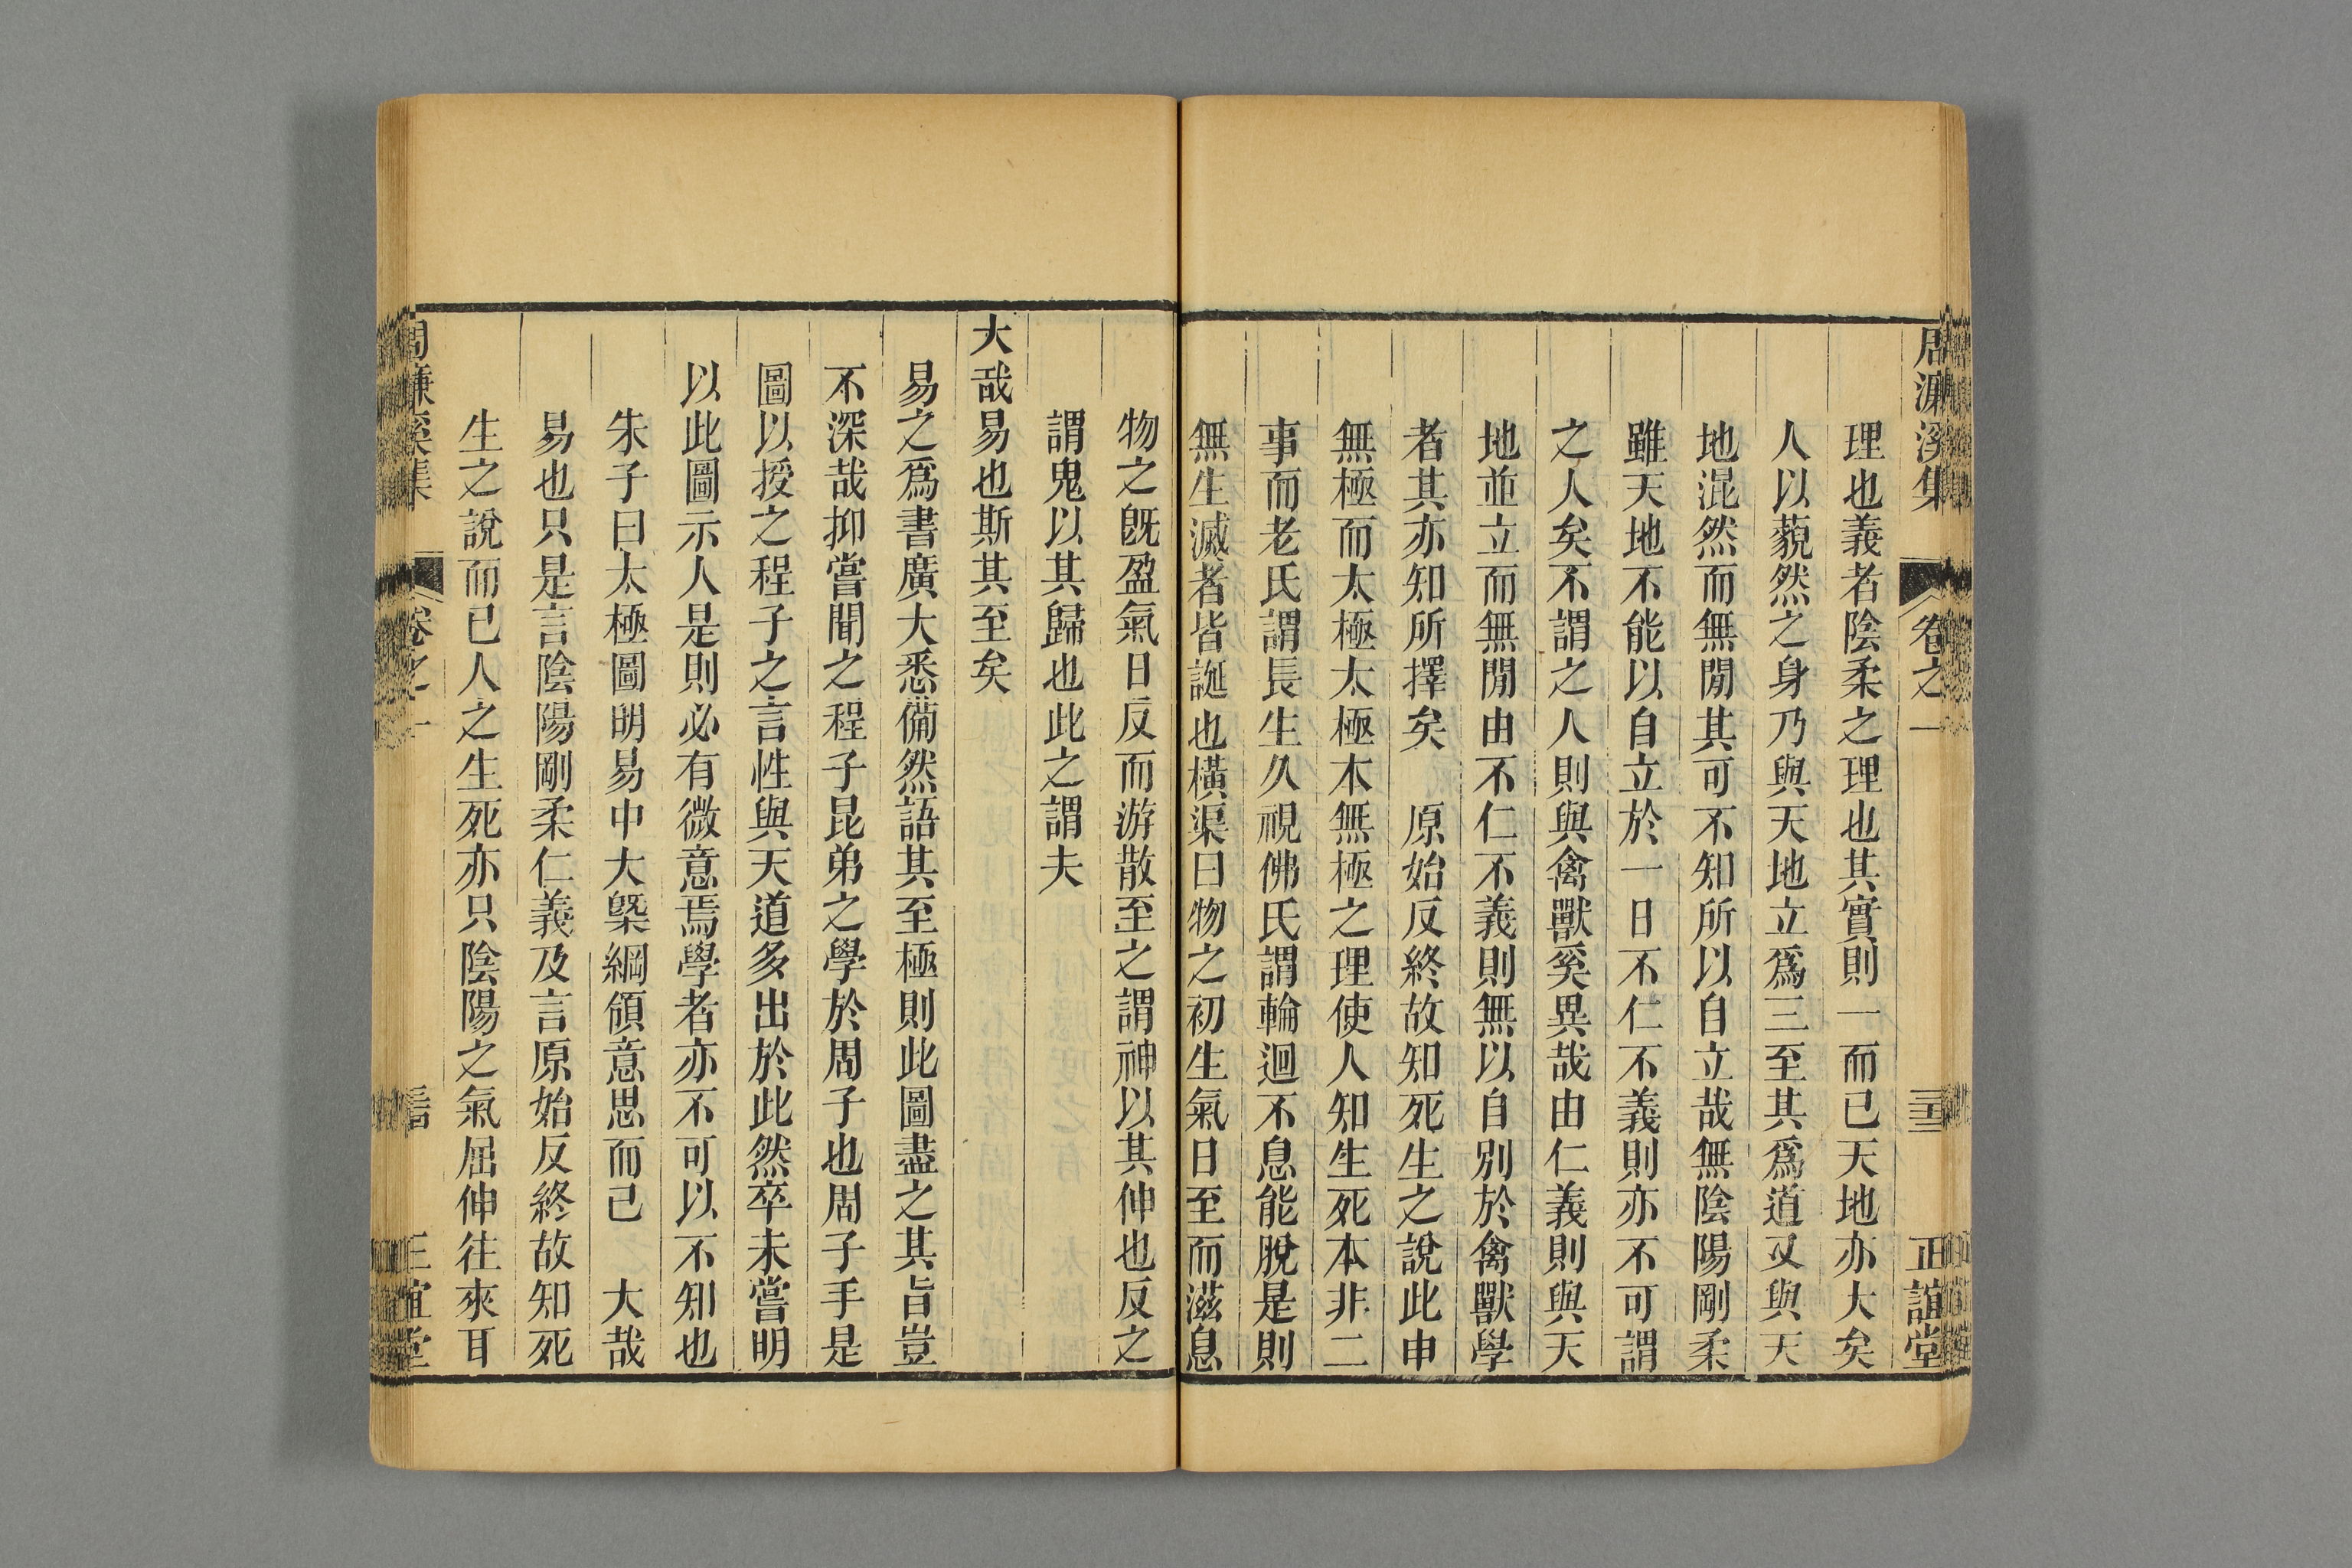 周濂溪集 卷之一 正誼堂
理也義者陰柔之理也其實則一而已天地亦大矣
人以藐然之身乃與天地立爲三至其爲道又與天
地混然而無閒其可不知所以自立哉無陰陽剛柔
雖天地不能以自立於一日不仁不義則亦不可謂
之人矣不謂之人則與禽獸奚異哉由仁義則與天
地並立而無閒由不仁不義則無以自別於禽獸學
者其亦知所擇矣　原始反終故知死生之說此申
無極而太極太極本無極之理使人知生死本非二
事而老氏謂長生久視佛氏謂輪迴不息能脫是則
無生滅者皆誕也橫渠曰物之初生氣日至而滋息
物之旣盈氣日反而游散至之謂神以其伸也反之
謂鬼以其歸也此之謂夫
大哉易也斯其至矣
易之爲書廣大悉備然語其至極則此圖盡之其旨豈
不深哉抑嘗聞之程子昆弟之學於周子也周子手是
圖以授之程子之言性與天道多出於此然卒未嘗明
以此圖示人是則必有微意焉學者亦不可以不知也
朱子曰太極圖明易中大槩綱領意思而已　大哉
易也只是言陰陽剛柔仁義及言原始反終故知死
生之說而已人之生死亦只陰陽之氣屈伸往來耳
周濂溪集 卷之一 正誼堂